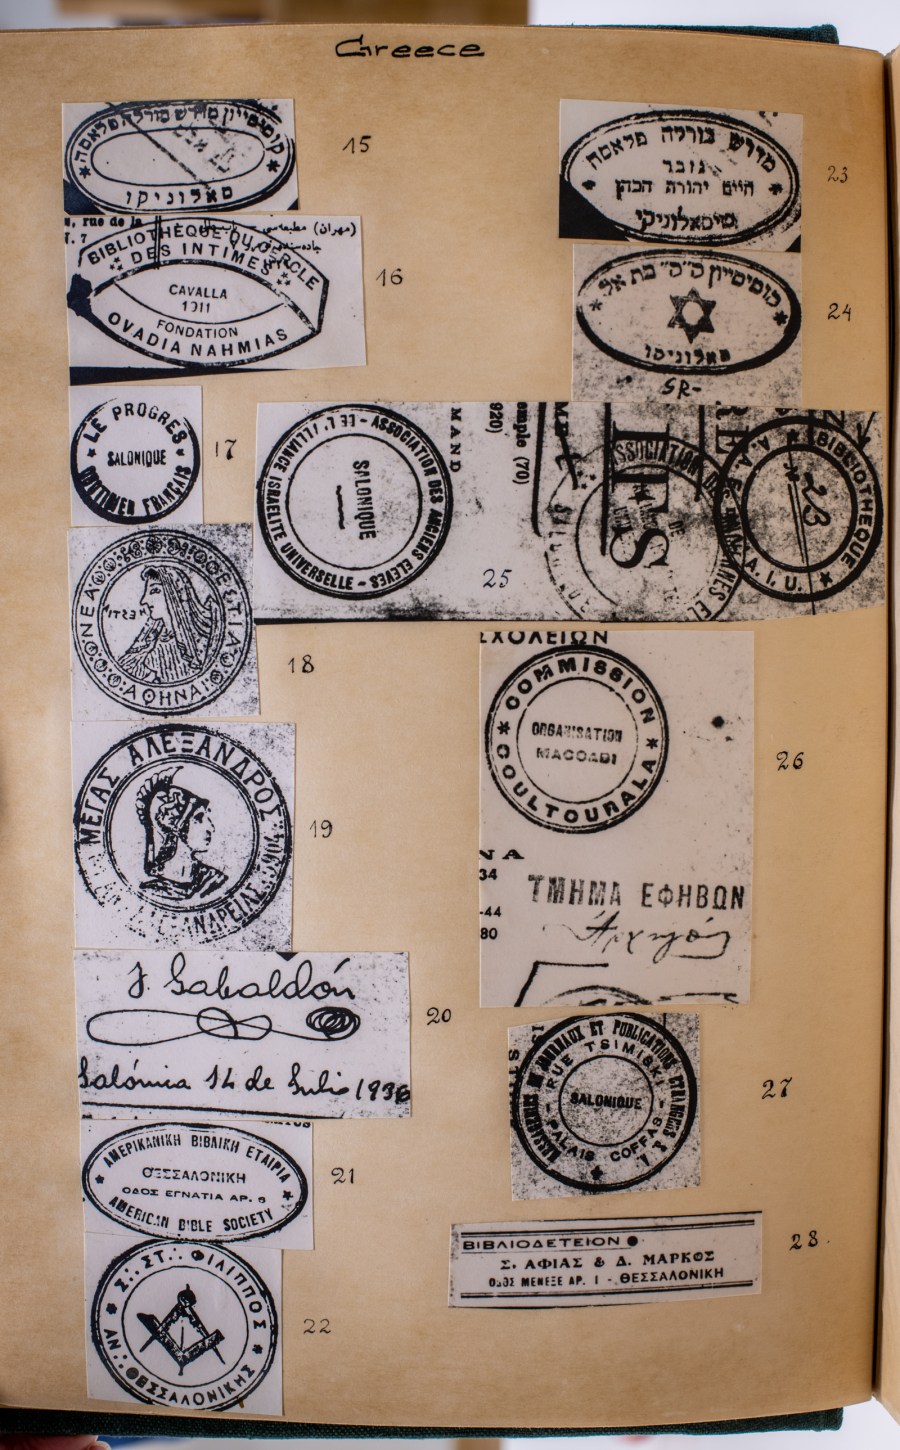 Greece
קומיסיון מדרש בורלה פלאסה
סאלוניקו
15
, rue de la
BIBLIOTHÈQUE DU CERCLE
DES INTIMES
CAVALLA
1911
FONDATION
OVADIA NAHMIAS
16
LE PROGRES
SALONIQUE
QUOTIDIEN FRANÇAIS
17
ΝΕΑ
ΑΘΗΝΑΙ
18
ΜΕΓΑΣ ΑΛΕΞΑΝΔΡΟΣ
19
J. Gabaldón
Salónica 14 de Julio 1936
20
ΑΜΕΡΙΚΑΝΙΚΗ ΒΙΒΛΙΚΗ ΕΤΑΙΡΙΑ
ΘΕΣΣΑΛΟΝΙΚΗ
ΟΔΟΣ ΕΓΝΑΤΙΑ ΑΡ. 6
AMERICAN BIBLE SOCIETY
21
Σ∴ ΣΤ∴ ΦΙΛΙΠΠΟΣ
ΑΝ∴ ΘΕΣΣΑΛΟΝΙΚΗΣ
22
מדרש בורלה פלאסה
גזבר
חיים יהודה הכהן
23
קומיסיון ת"ת בת אל
סאלוניקו
SR-
24
ASSOCIATION DES ANCIENS ELEVES
DE L'ALLIANCE ISRAELITE UNIVERSELLE
SALONIQUE
MAND
920)
emple (70)
ASSOCIATION
BIBLIOTHEQUE
A.I.U.
23
25
ΣΧΟΛΕΙΩΝ
COMMISSION
ORGANISATION
MACCABI
COULTOURALA
ΝΑ
34
-44
80
ΤΜΗΜΑ ΕΦΗΒΩΝ
Ἀρχηγός
26
JOURNAUX ET PUBLICATIONS
RUE TSIMISKI
SALONIQUE
PALAIS COFFAS
27
ΒΙΒΛΙΟΔΕΤΕΙΟΝ
Σ. ΑΦΙΑΣ & Δ. ΜΑΡΚΟΣ
ΟΔΟΣ ΜΕΝΕΞΕ ΑΡ. 1 - ΘΕΣΣΑΛΟΝΙΚΗ
28